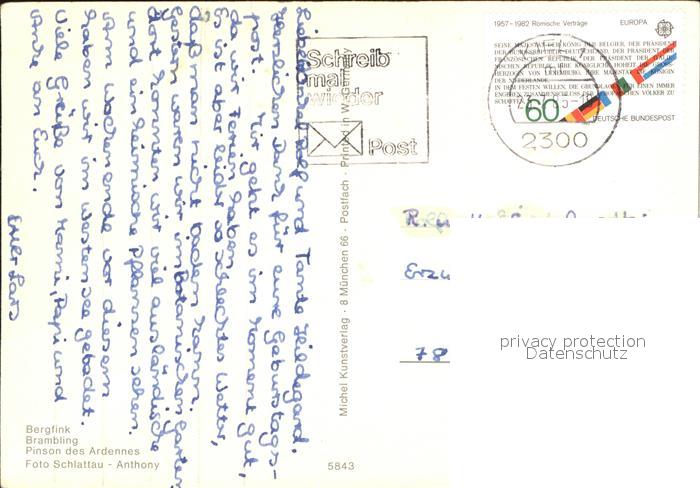 Lieber Onkel Rolf und Tante Hildegard.
Herzlichen Dank für eure Geburtstags-
post. Mir geht es im Moment gut,
da wir Ferien haben.
Es ist aber leider so schlechtes Wetter,
daß man nicht baden kann.
Gestern waren wir im Botanischen Garten,
dort konnten wir viel ausländische
und heimische Pflanzen sehen.
Am Wochenende vor diesem
haben wir im Westensee gebadet.
Viele Grüße von Mami, Papi und
Anke an Euch.
Euer Lars
Bergfink
Brambling
Pinson des Ardennes
Foto Schlattau - Anthony
5843
Michel Kunstverlag · 8 München 66 · Postfach · Printed in W.-Germany
Schreib
mal
wieder
Post
1957-1982 Römische Verträge EUROPA
SEINE MAJESTÄT DER KÖNIG DER BELGIER, DER PRÄSIDENT
DER BUNDESREPUBLIK DEUTSCHLAND, DER PRÄSIDENT DER
FRANZÖSISCHEN REPUBLIK, DER PRÄSIDENT DER ITALIE-
NISCHEN REPUBLIK, IHRE KÖNIGLICHE HOHEIT DIE GROSS-
HERZOGIN VON LUXEMBURG, IHRE MAJESTÄT DIE KÖNIGIN
DER NIEDERLANDE
IN DEM FESTEN WILLEN, DIE GRUNDLAGEN FÜR EINEN IMMER
ENGEREN ZUSAMMENSCHLUSS DER EUROPÄISCHEN VÖLKER ZU
SCHAFFEN
60
DEUTSCHE BUNDESPOST
2300
78
privacy protection
Datenschutz